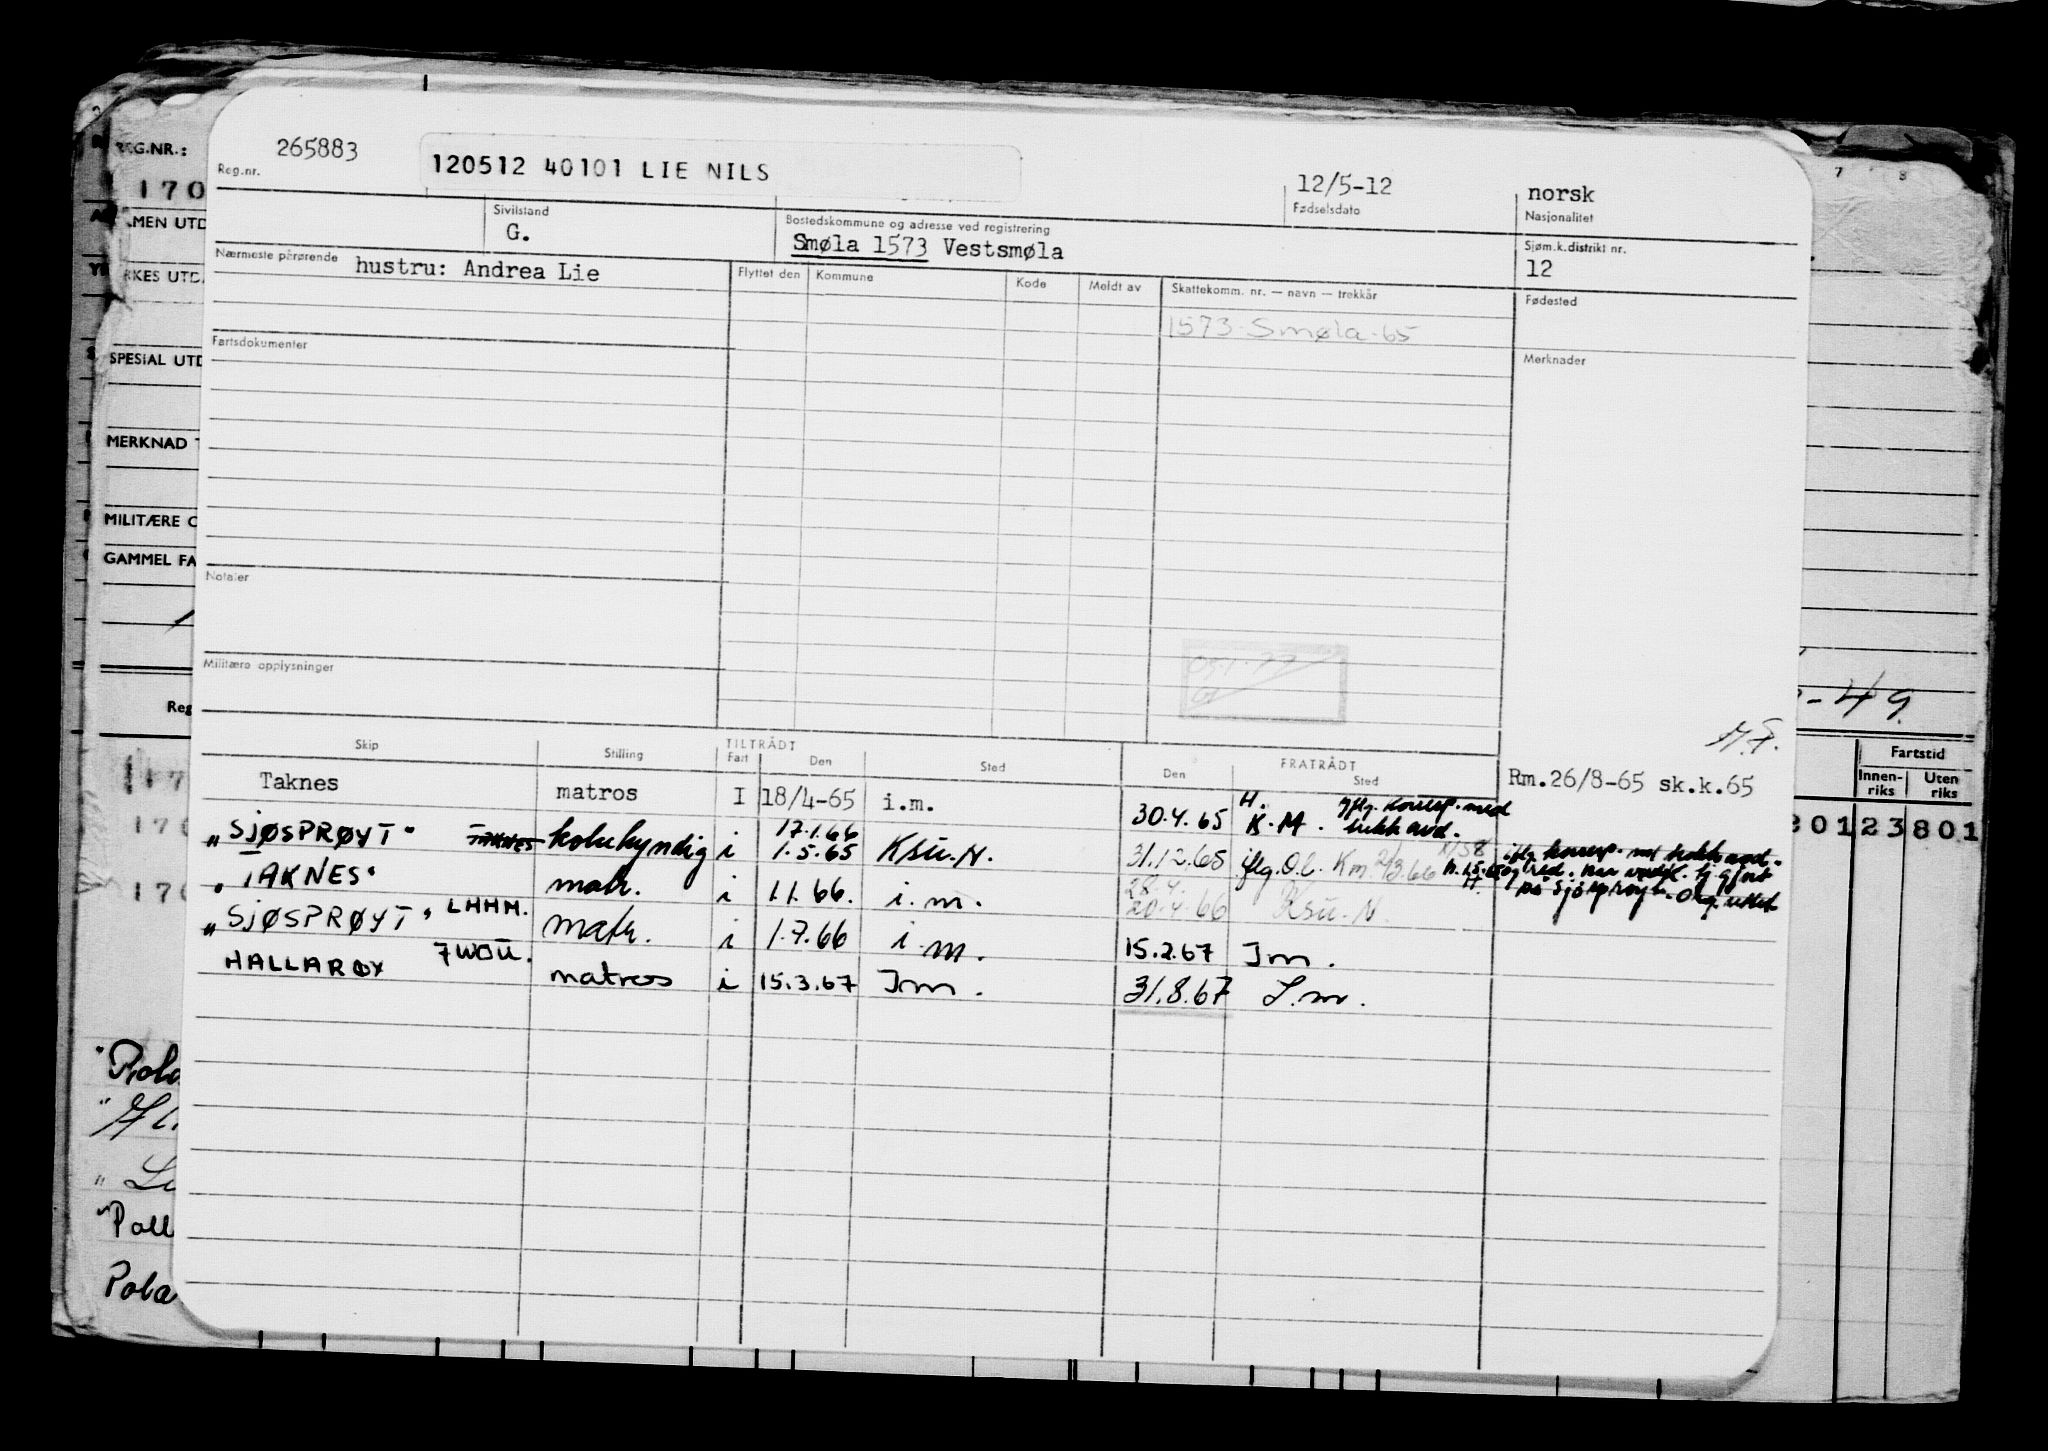 265883
Reg.nr.
120512 40101 LIE NILS
12/5-12
Fødselsdato
norsk
Nasjonalitet
Sivilstand
G.
Bostedskommune og adresse ved registrering
Smøla 1573 Vestsmøla
Sjøm.k.distrikt nr.
12
Nærmeste pårørende hustru: Andrea Lie
Flyttet den Kommune Kode Meldt av Skattekomm. nr. — navn — trekkår
Fødested
1573 Smøla 65
Fartsdokumenter
Merknader
Notater
Militære opplysninger
H.F.
Skip Stilling TILTRÅDT Fart Den Sted FRATRÅDT Den Sted
Taknes matros I 18/4-65 i.m. 30.4.65 K.M.
Rm.26/8-65 sk.k.65
17.1.66
„SJØSPRØYT" TAKNES i 1.5.65 Ksu.N. 31.12.65 iflg. O.l. Km 2/3.66
"TAKNES" matr. i 1.1.66. i.m. 28.4. 20.4.66 Ksu.N.
„SJØSPRØYT" LHHM. matr. i 1.7.66 i.m. 15.2.67 Im.
HALLARØY 7WOU. matros i 15.3.67 Im. 31.8.67 I.m.
REG.NR.:
170
MEN UTD
RKES UTD.
SPESIAL UTD
MERKNAD T
MILITÆRE O
GAMMEL FA
Reg
17
170
170
"Pola
"Pall
Pola
7 8
-49
Fartstid
Innen-riks Uten riks
20123801